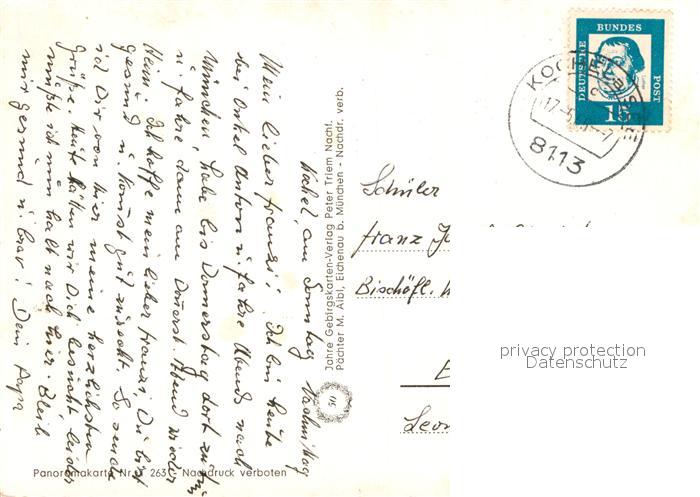 Kochel, am Sonntag Nachmittag
Mein lieber Franzi! Ich bin heute
bei Onkel Anton u. fahre Abends nach
München, habe bis Donnerstag dort zu tun
u. fahre dann am Donnerst. Abend wieder
Heim. Ich hoffe mein lieber Franzi, Du bist
gesund u. kommst gut zurecht. So sende
ich Dir von hier meine herzlichsten
Grüße. Heut hätten wir Dich besucht, leider
mußte ich nun halt nach hier. Bleib
mir gesund u. brav! Dein Papa
Jahre Gebirgskarten-Verlag Peter Triem Nachf.
Pächter M. Aibl, Eichenau b. München - Nachdr. verb.
115
Panoramakarte Nr. 263 Nachdruck verboten
DEUTSCHE BUNDES POST
15
KOCHEL a. SEE
8113
Schüler
Franz
Bischöfl.
privacy protection
Datenschutz